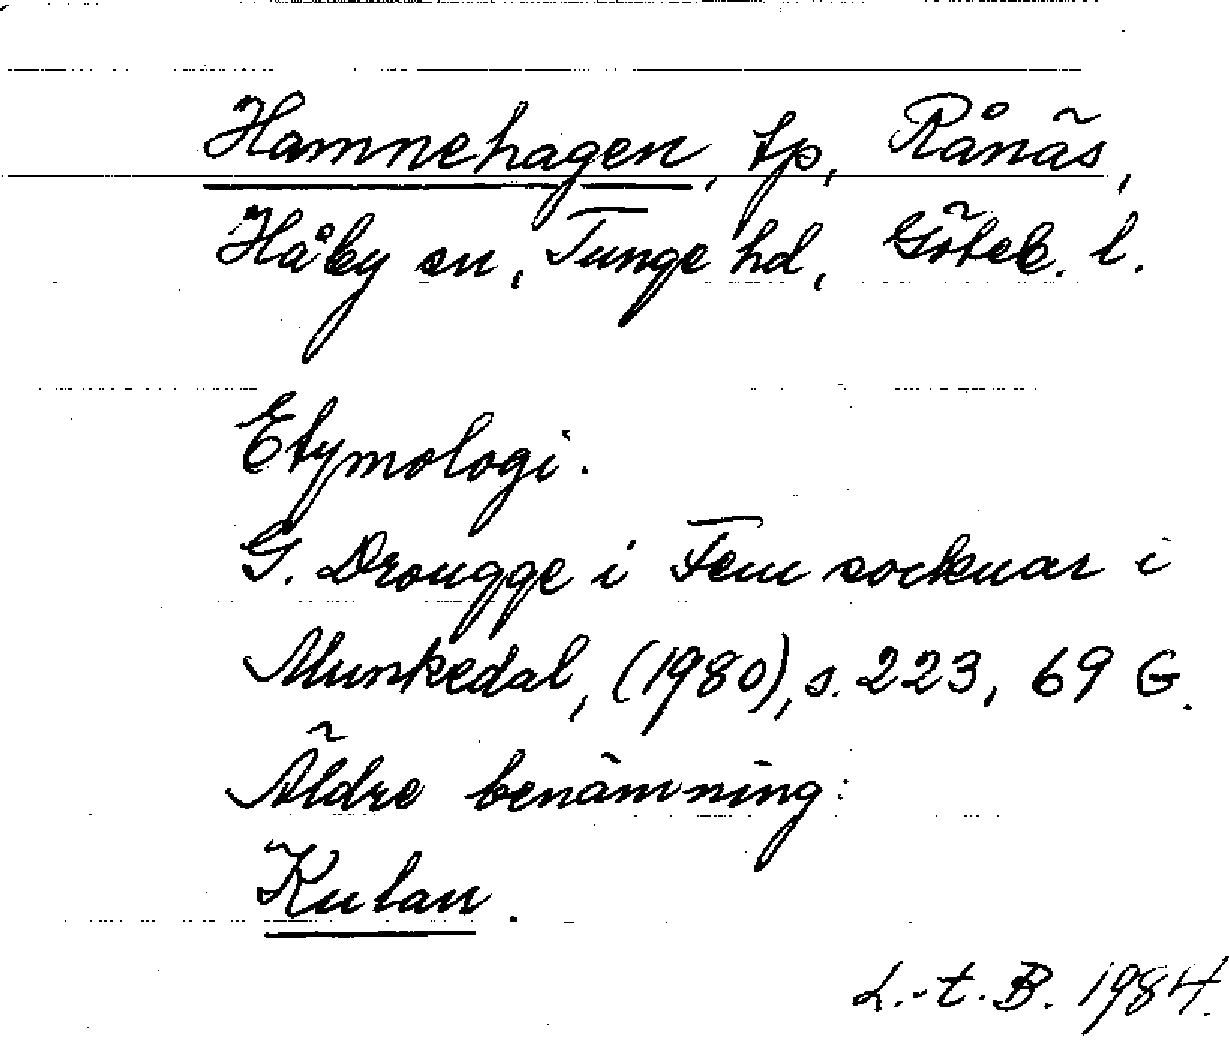 Hamnehagen, tp, Rånäs,
Håby sn, Tunge hd, Göteb. l.
Etymologi.
G. Drougge i Fem socknar i
Munkedal, (1980), s. 223, 69 G.
Äldre benämning:
Kulan.
L.-t. B. 1984.